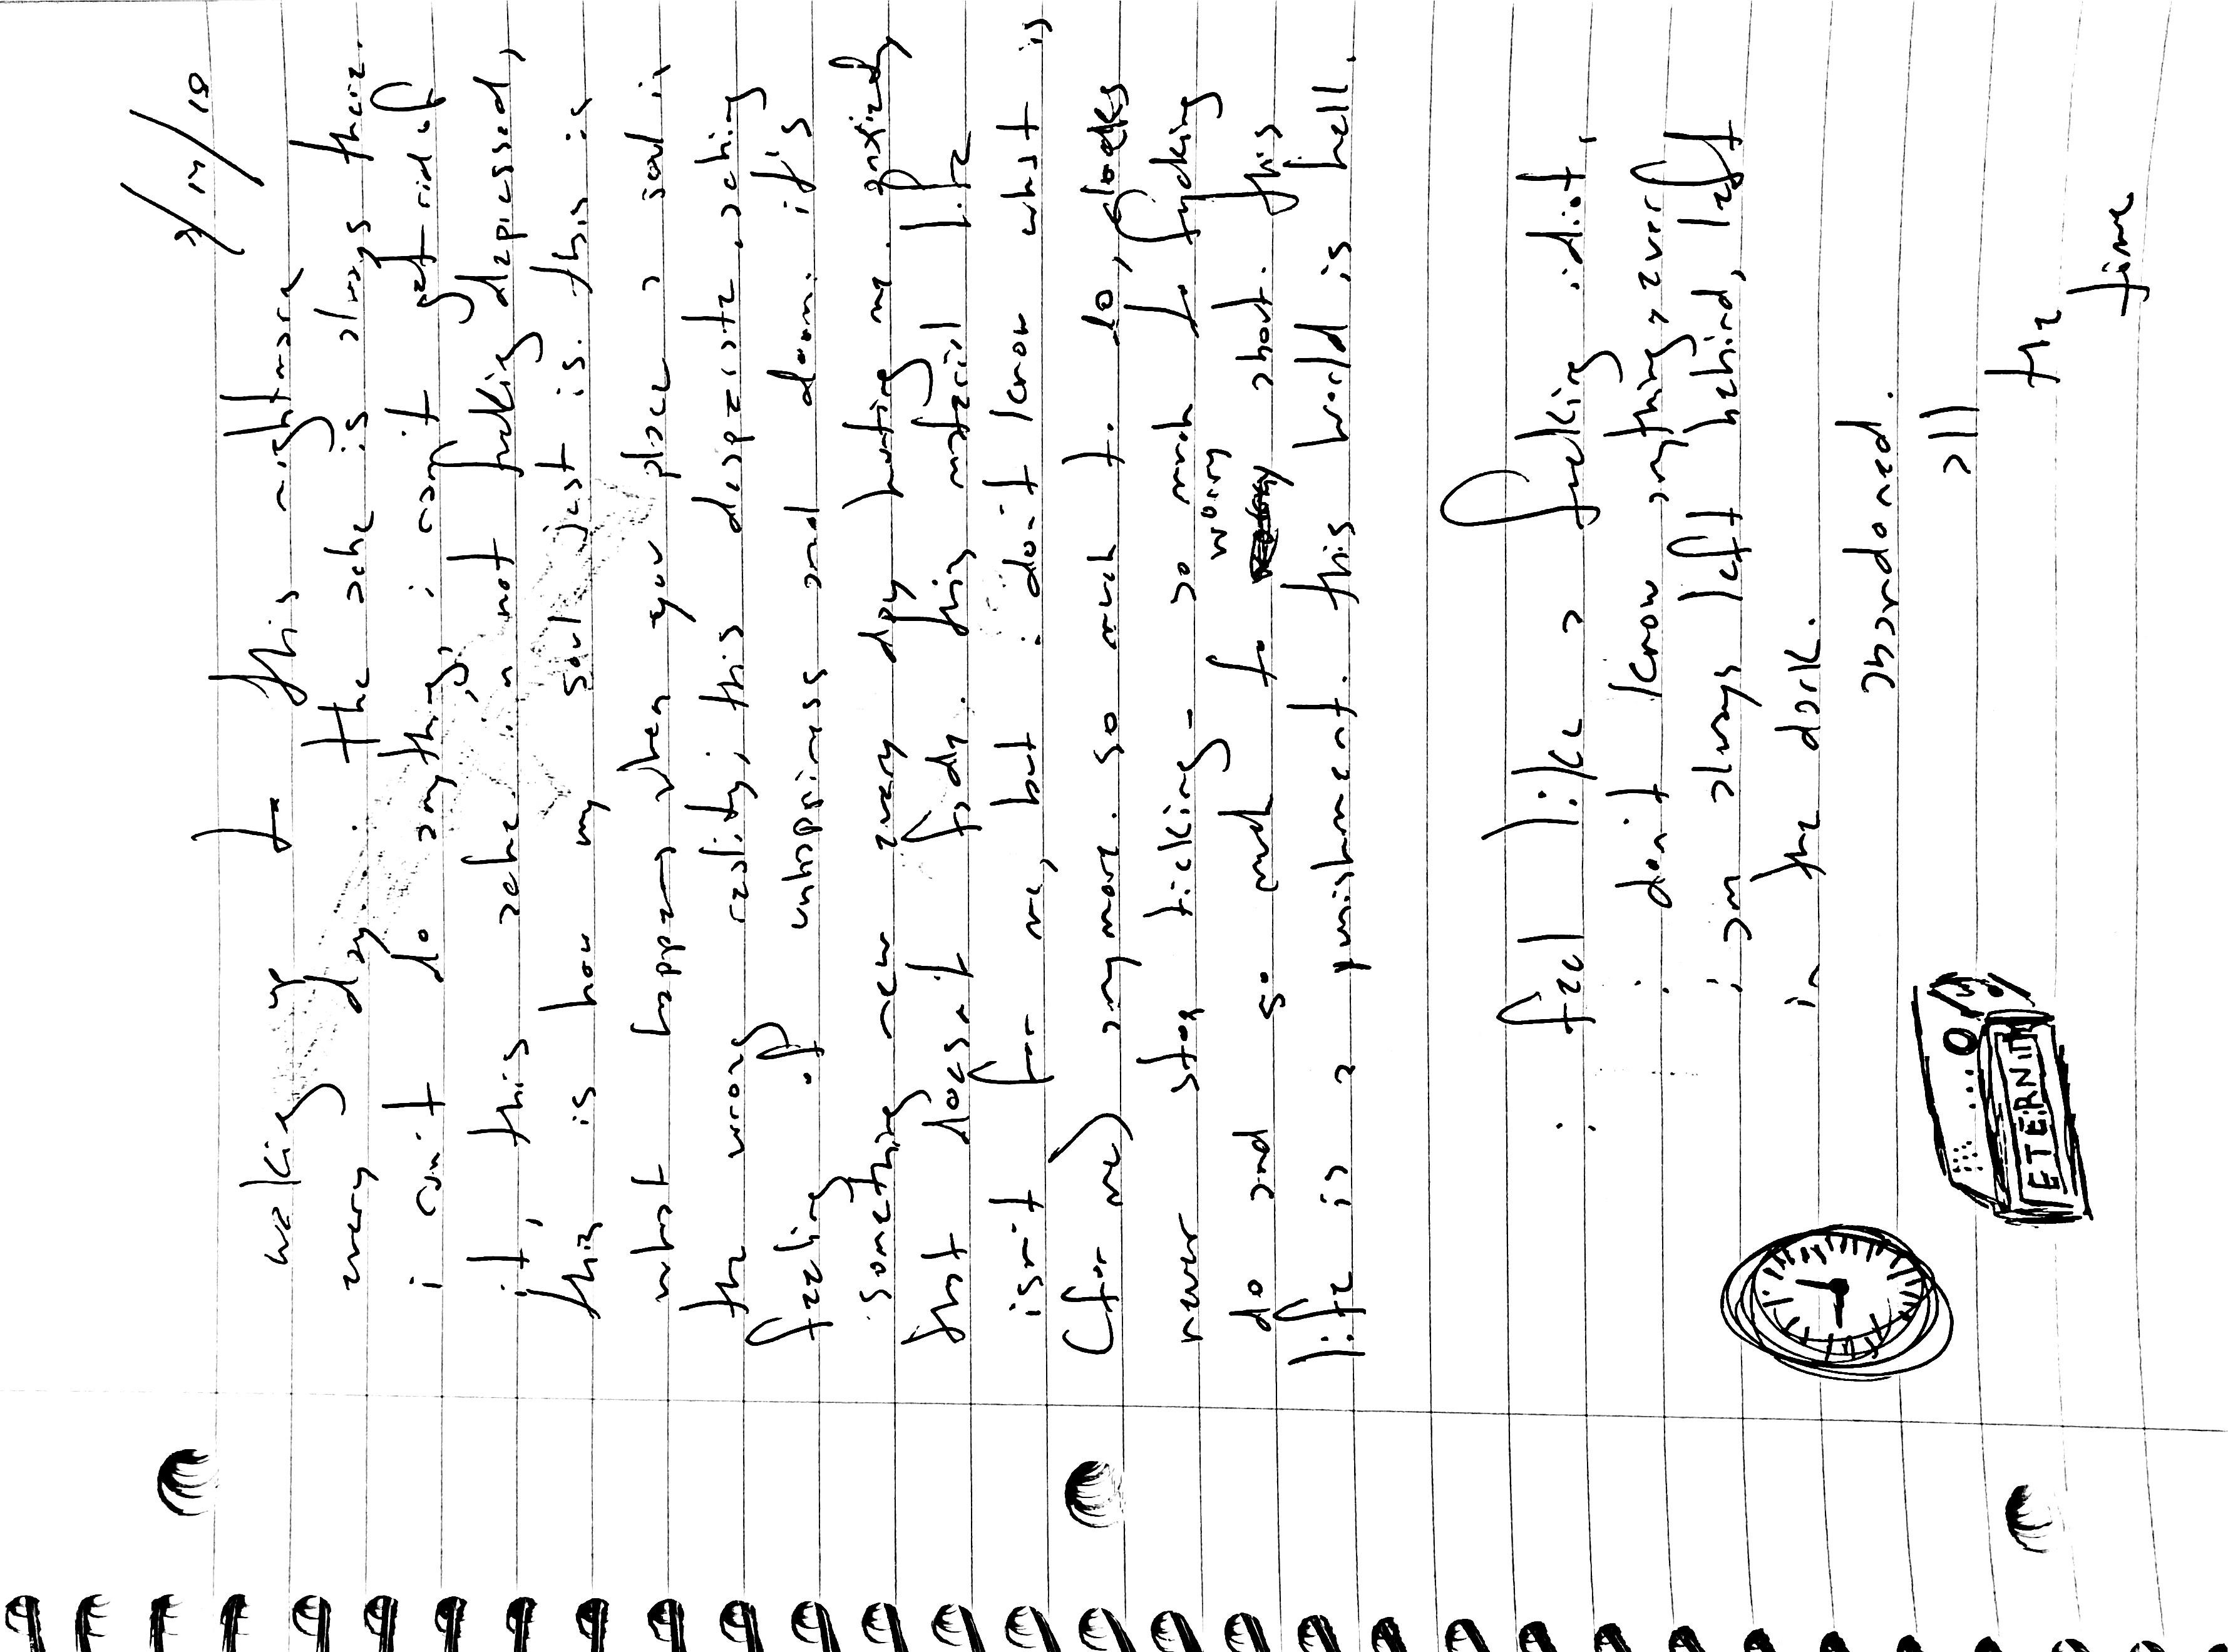 /18
waking up to this nightmare
every day. the ache is always there.
i can't do anything, i can't get rid of
it, this ache. i'm not fucking depressed,
this is how my soul just is. this is
what happens when you place a soul in
the wrong reality; this desperate, aching
feeling of unhappiness and doom. it's
something new every day hurting me. anxiety
that doesn't fade. this material life
isn't for me, but i don't know what is
(for me) anymore. so much to do, clocks
never stop ticking - so much to fucking
do and so much to worry about. this
life is a punishment. this world is hell.
i feel like a fucking idiot,
i don't know anything, ever
i am always left behind, left
in the dark.
abandoned.
all
the
time
ETERNITY